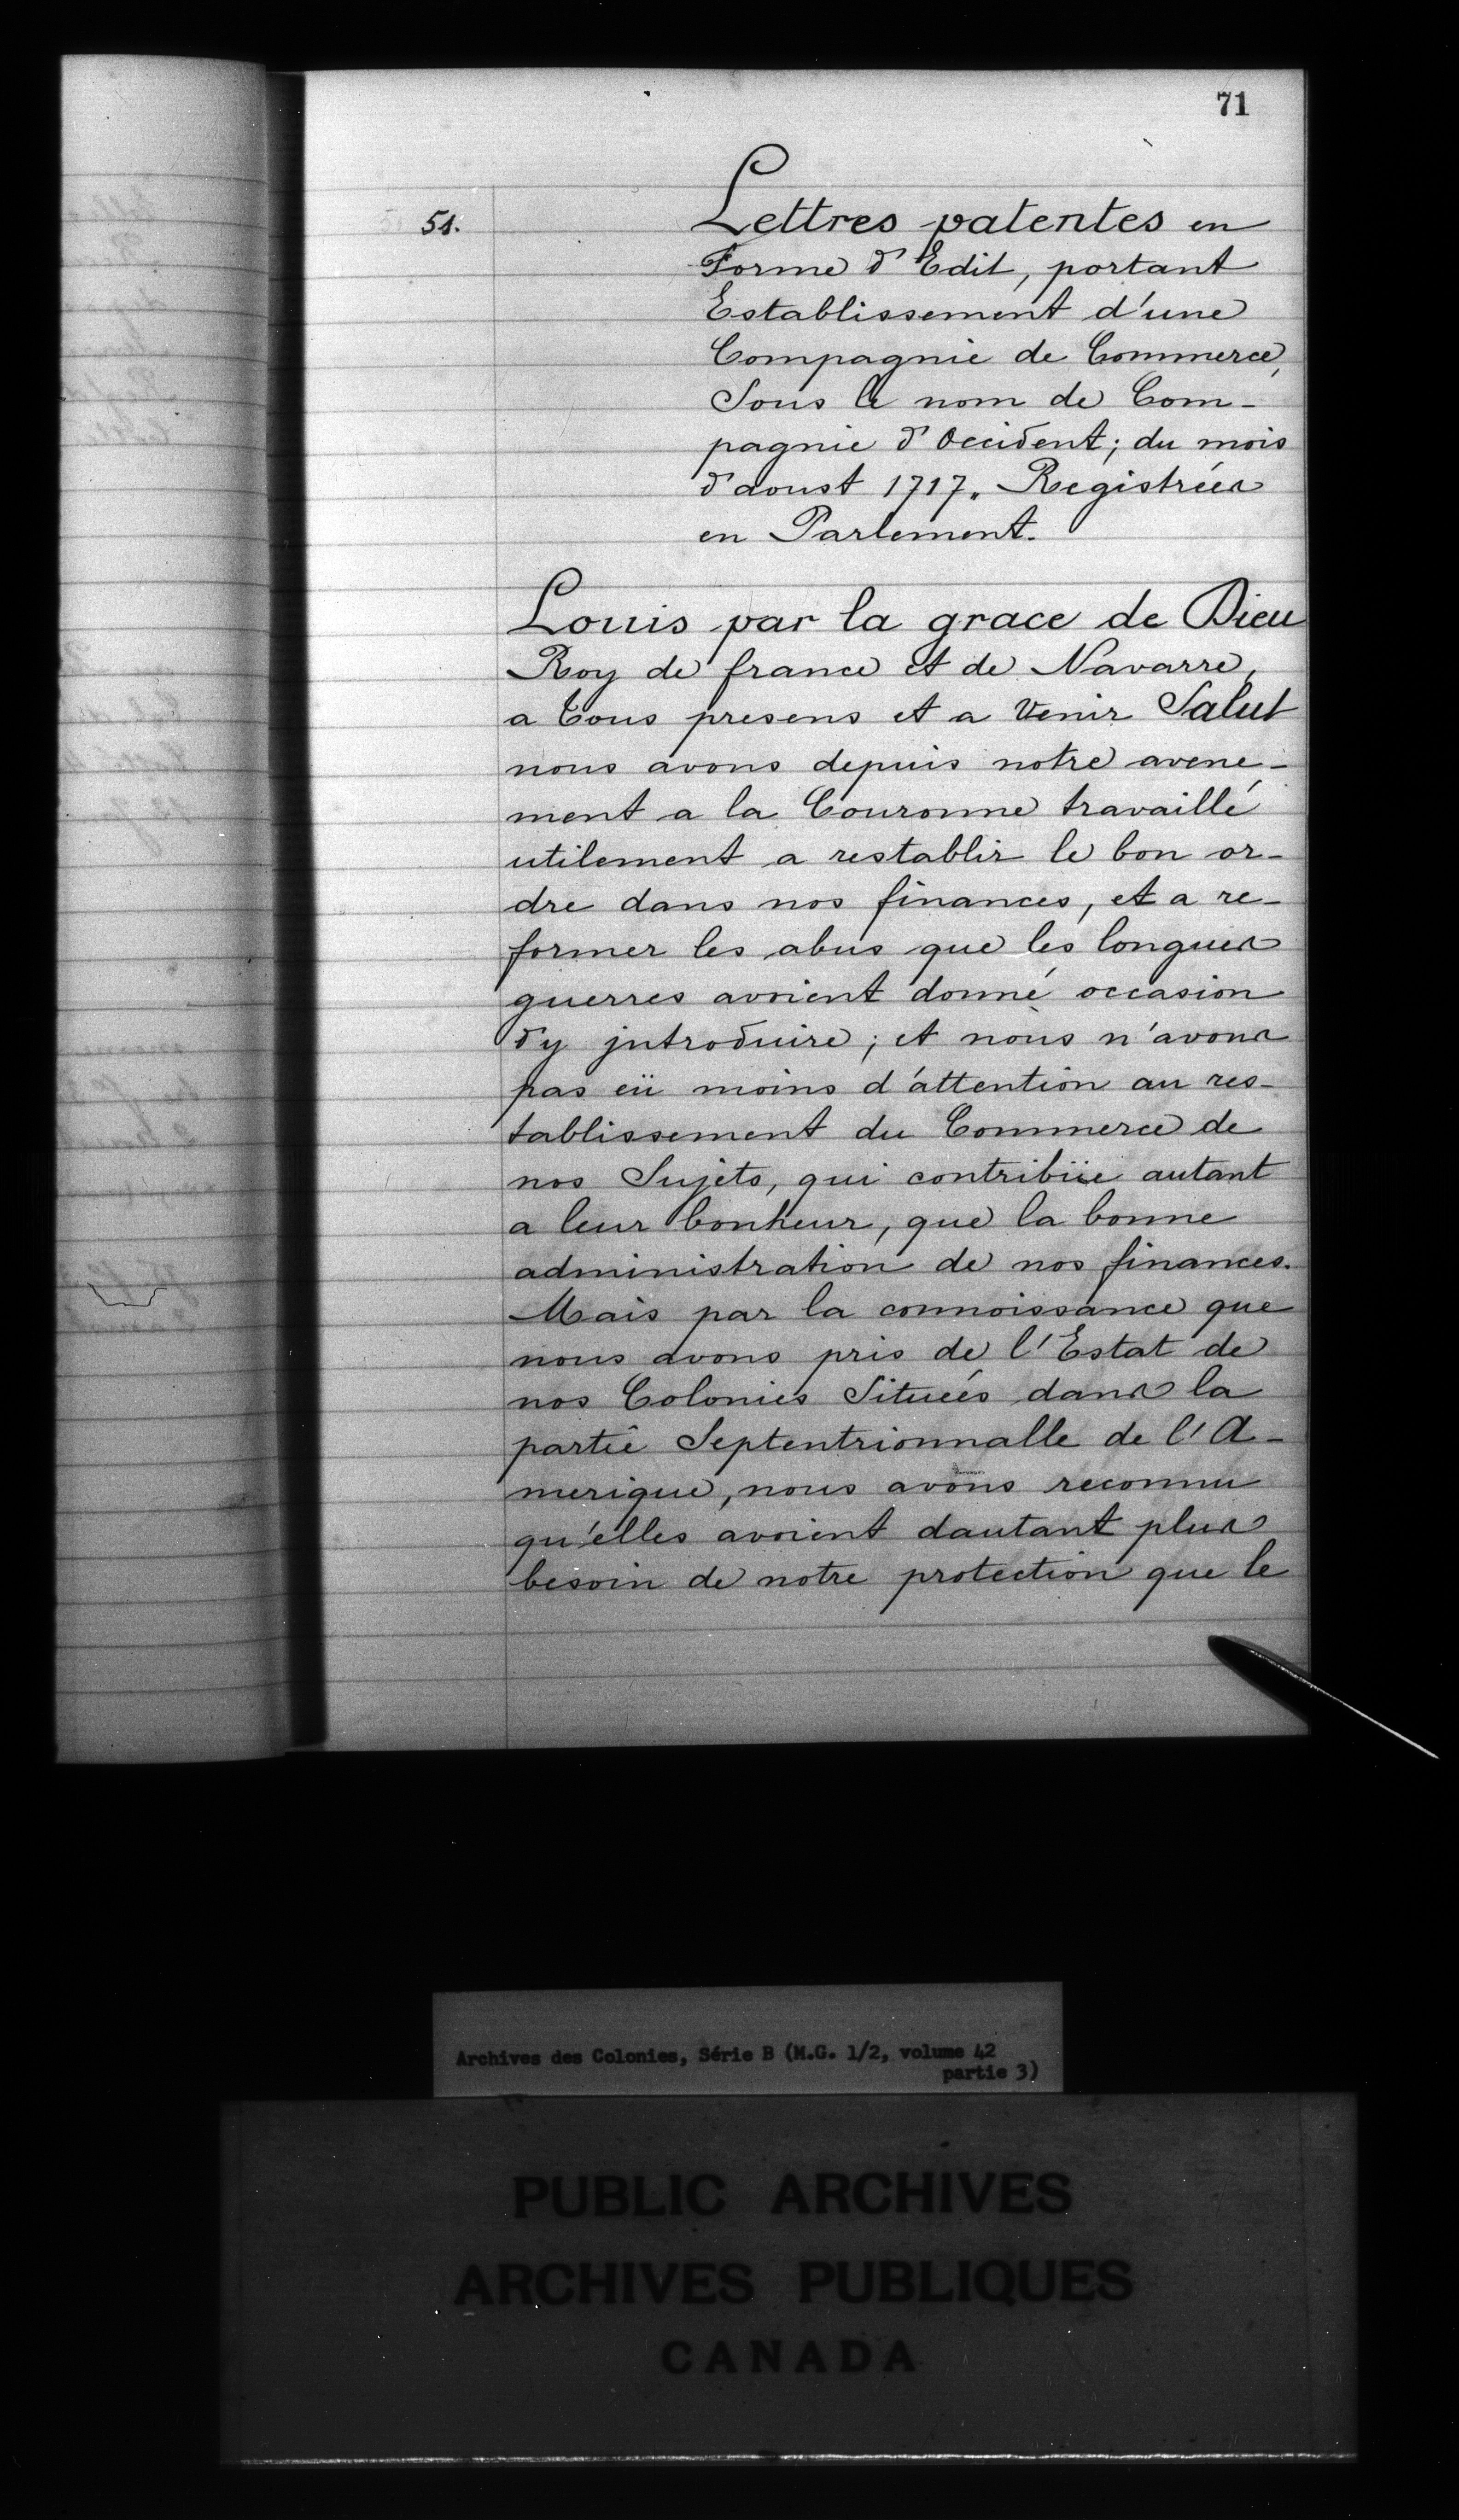 71
51.
Lettres patentes en
Forme d'Edit, portant
Establissement d'une
Compagnie de Commerce,
Sous le nom de Com-
pagnie d'Occident; du mois
d'aoust 1717. Registrées
en Parlement.
Louis par la grace de Dieu
Roy de france et de Navarre,
a tous presens et a venir Salut
nous avons depuis notre avene-
ment a la Couronne travaillé
utilement a restablir le bon or-
dre dans nos finances, et a re-
former les abus que les longues
guerres avoient donné occasion
d'y jntroduire; et nous n'avons
pas eü moins d'attention au res-
tablissement du Commerce de
nos Sujets, qui contribüe autant
a leur bonheur, que la bonne
administration de nos finances.
Mais par la connoissance que
nous avons pris de l'Estat de
nos Colonies Situées dans la
partie Septentrionnalle de l'A-
merique, nous avons reconnu
qu'elles avoient dautant plus
besoin de notre protection que le
Archives des Colonies, Série B (M.G. 1/2, volume 42
partie 3)
PUBLIC ARCHIVES
ARCHIVES PUBLIQUES
CANADA